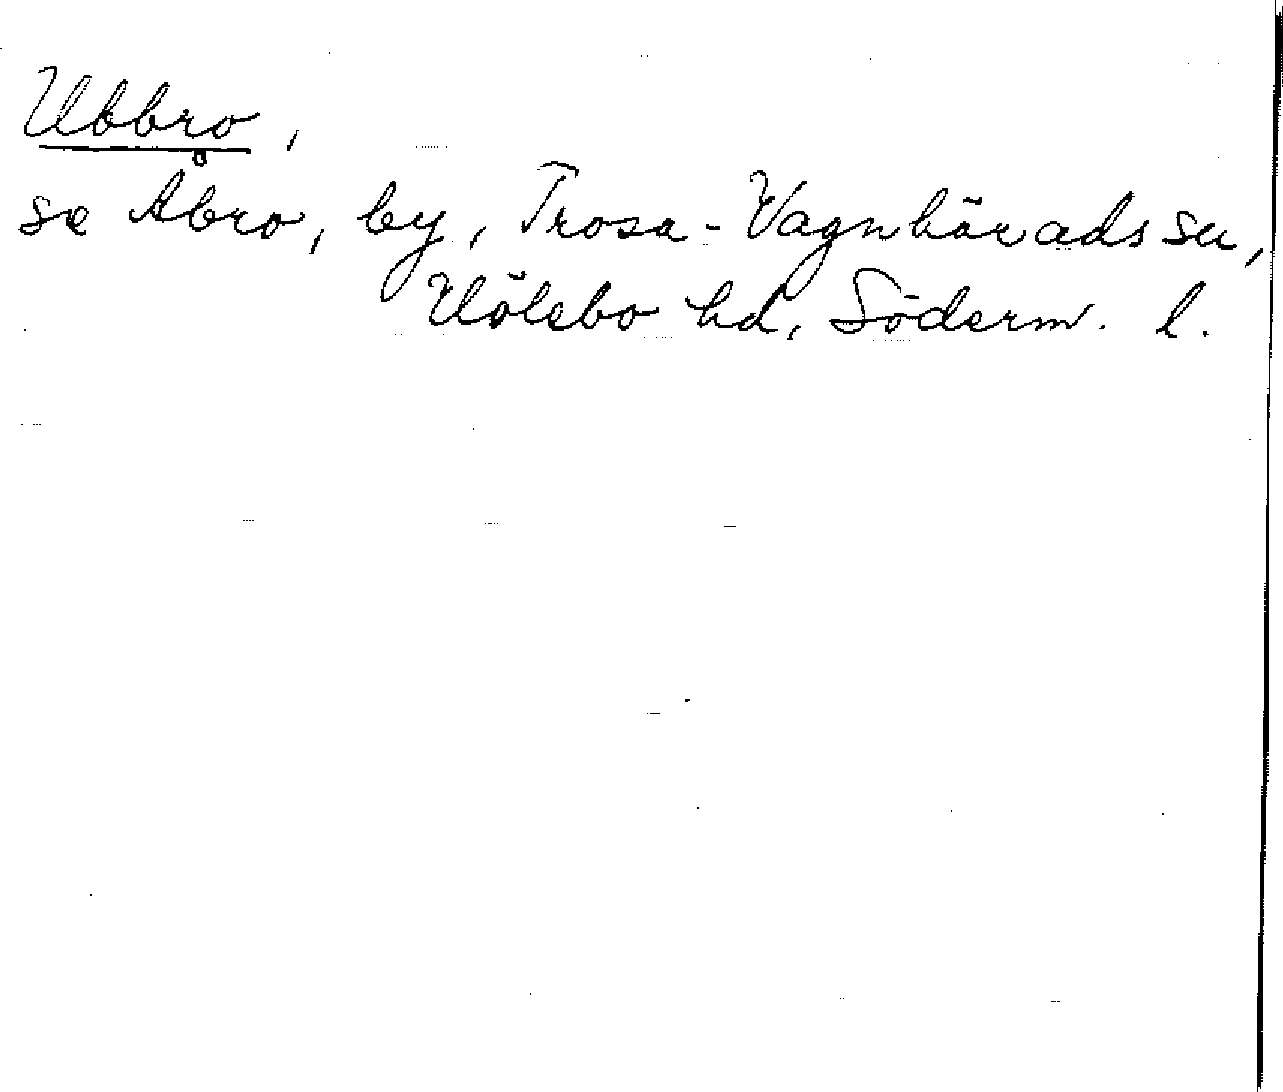 Ubbro,
se Åbro, by, Trosa-Vagnhärads sn,
Hölebo hd, Söderm. l.